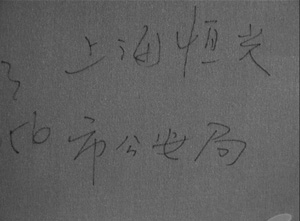 上海恒光
56 市公安局